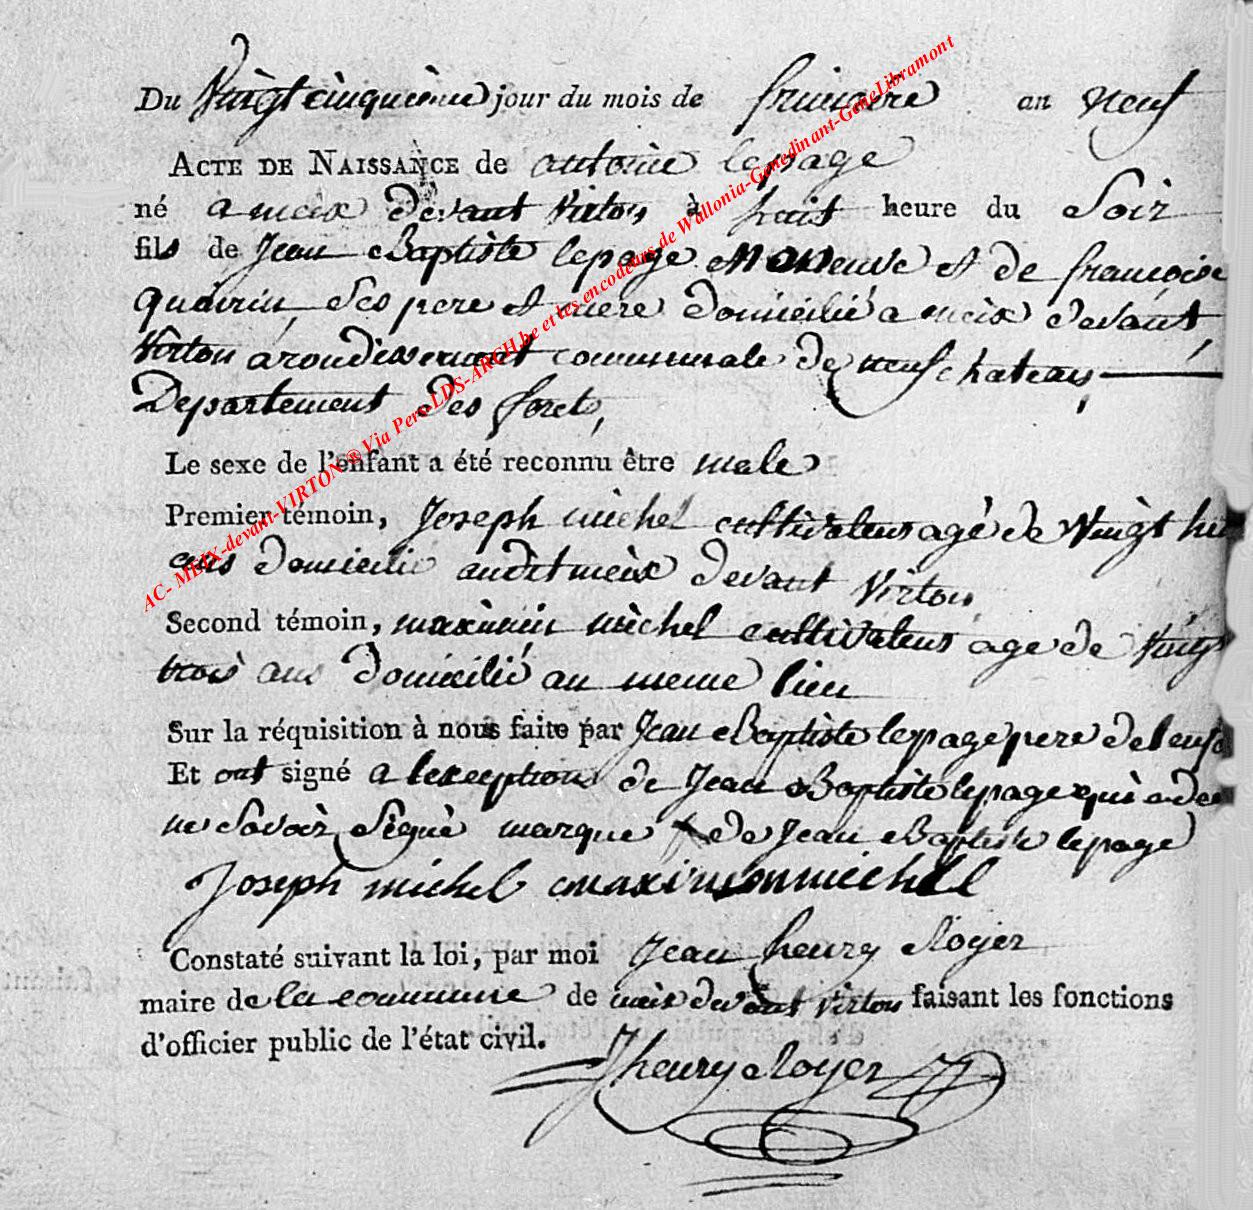 Du Vingt cinquième jour du mois de frimaire an neuf
ACTE DE NAISSANCE de antoine lepage
né a meix devant Virton à huit heure du Soir
fils de Jean Baptiste lepage et de françoise
quairin Ses pere et mere domicilié a meix devant
Virton arondissement communale de neufchateau
Departement des forets,
Le sexe de l'enfant a été reconnu être male
Premier témoin, Joseph michel cultivateur agé de Vingt
ans domicilié audit meix devant Virton
Second témoin, maximin michel cultivateur age de
trois ans domicilié au meme lieu
Sur la réquisition à nous faite par Jean Baptiste lepage pere de
Et ont signé a lexeption de Jean Baptiste lepage qui a
ne Savoir Signè marque de Jean Baptiste lepage
Joseph michel michel
Constaté suivant la loi, par moi Jean henry Royer
maire de la commune de meix devant Virton faisant les fonctions
d'officier public de l'état civil.
Jhenry Royer
AC- MEIX-devant-VIRTON ® Via Pero LDS-ARCH.be et les encodeurs de Wallonia-Genedinant-GeneLibramont